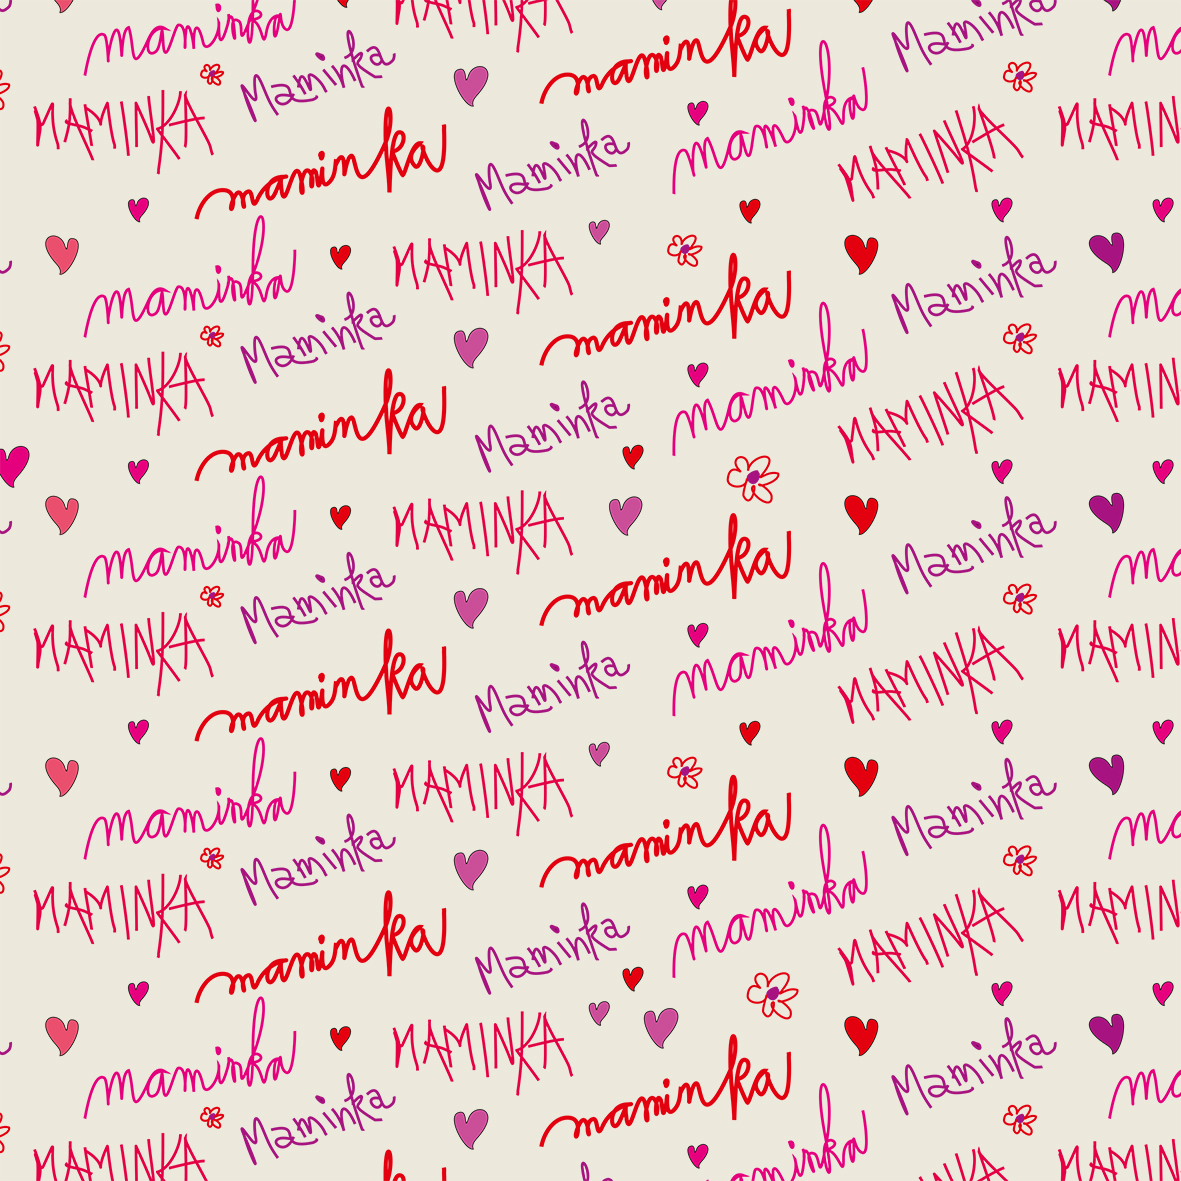 maminka MAMINKA maminka Maminka
Maminka maminka ma
MAMINKA maminka MAMINKA MAMIN
maminka Maminka
maminka MAMINKA Maminka
Maminka maminka ma
MAMINKA maminka MAMINKA MAMIN
maminka Maminka
maminka MAMINKA Maminka
Maminka maminka ma
MAMINKA maminka MAMINKA MAMIN
maminka Maminka
maminka MAMINKA Maminka
Maminka maminka ma
MAMINKA maminka MAMINKA MAMIN
maminka Maminka
maminka MAMINKA Maminka
Maminka maminka ma
MAMINKA maminka MAMIN